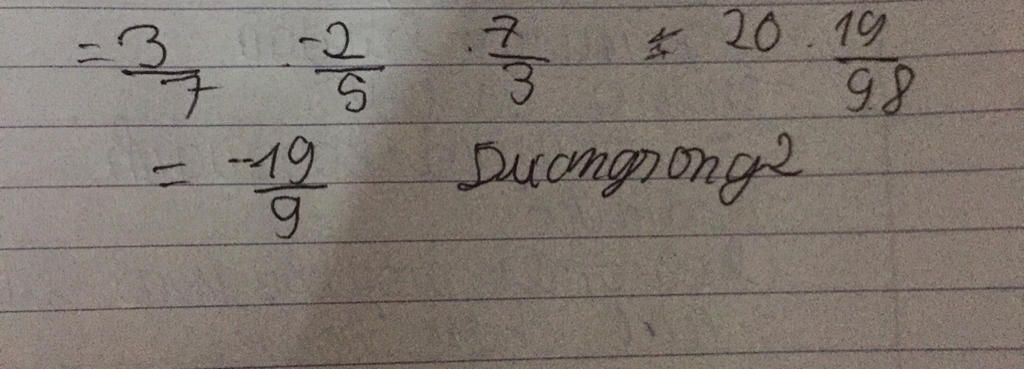 = 3/7 . -2/5 . 7/3 . 20 . 19/9.8
= -19/9 Duongrong2